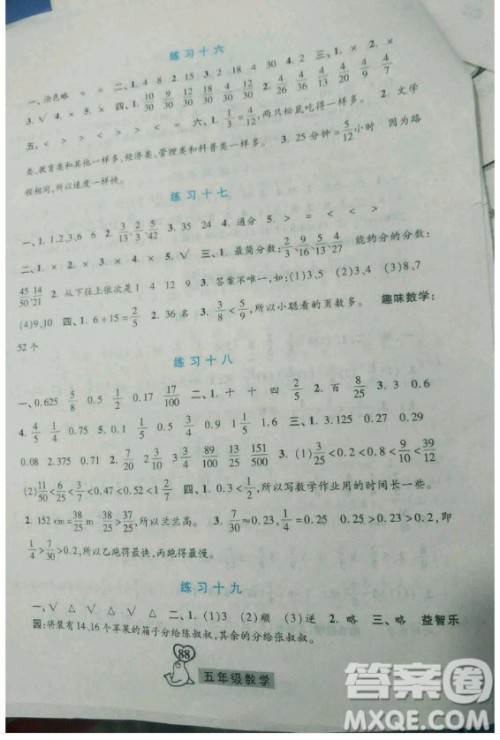 练习十六
一、涂色略 = × 二、1. 4 8 2. 15 3. 2 18 4 30 三、1. × 2. ×
3. √ 4. × 5. × 四、1. 4/10
五、< > < > > < = 六、1. 1/3=4/12,两只松鼠吃得一样多。 2. 文学
类、教育类和其他一样多,经济类、管理类和科普类一样多。 3. 25分钟=5/12小时 因为路
程相同,所以速度一样快。
练习十七
一、1. 1,2,3,6 6 2. 2/13、5/42 3. 35 24 4. 通分 5. > = < < >
二、1. × 2. × 3. × 4. × 5. √ 三、1. 最简分数:2/3、 能约分的分数:
45/50、14/21 2. 从下往上依次是 1 4 12 9 3. 答案不唯一,如:(1)3,5 (2)3,4 (3)8,7
(4)9,10 四、1. 6÷15=2/5 2. 36名 3. ,所以小聪看的页数多。 趣味数学:
52个
练习十八
一、0.625 5/8 0.5 1/2 0.17 17/100 二、1. 十 十 四 2. 百 8/25 3. 3 0.6
4. 4/5 1/4 0.75 5. 0.1 1/5 0.4 2/5 0.6 三、1. 3.125 0.27 0.29
0.08 2.375 0.71 2. 7/20 2/11 13/200 12/25 13/500 151/500 3. (1)3/25<0.8<9/10<39/12
(2)11/50<6/25<0.47<0.52<1 2/7 四、1. ,所以写数学作业用的时间长一些。
2. 152 cm=38/25 m ,所以兰兰高。 3. 7/30≈0.23,1/4=0.25 0.25>0.23>0.2,即
1/4>7/30>0.2,所以乙跑得最快,丙跑得最慢。
练习十九
一、√ △ √ △ 二、1. (1)3 (2)顺 (3)逆 2. 略 三、略 益智乐
园:将装有14、16个苹果的箱子分给陈叔叔,其余的分给张叔叔。
88
五年级数学
答案圈
MXQE.COM